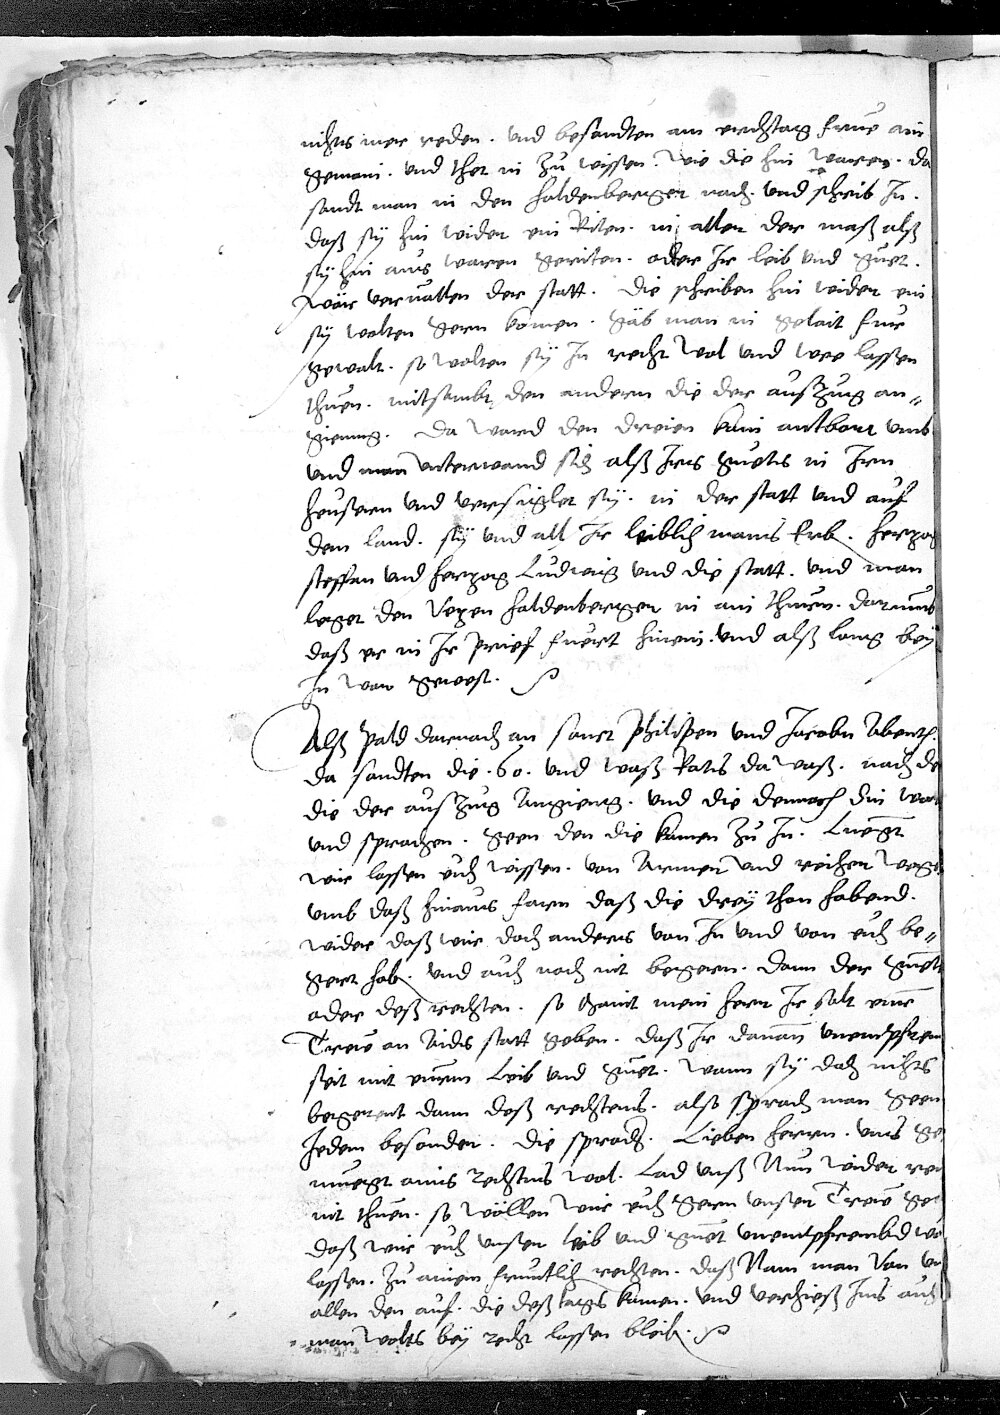 nichts mer reden. Und besandten am erchtag frue ain
gemain. und thet in zu wissen. wie die hin waren. da
sandt man in den Haldenberger nach. und schrib In.
daß sy hin wider ein Riten. in aller der maß alß
sy hin aus waren geriten. oder Ir leib und guet.
wär veruallen der statt. Die schriben hin wider ein
sy wolten gern komen. gäb man in gelait fur
gewalt. so wolten sy In recht wol und wee lassen
thuen. mitsambt den andern die der aufzug an-
gieng. Da ward den dreien kain antbort umb
und man unterwand sich alß Irs guets in Iren
heusern und versigelet sy. in der statt und auf
dem land. sy und all Ir leiblich manns Erb. Herzog
Steffan und Herzog Ludwig und die statt. und man
leget den Haldenberger in ain thuren. darumb
daß er in Ir prief fuert hinein. und alß lang bey
In war gewest.
Alß pald darnach an sanct Philippen und Jacobn Abent.
da sandten die .60. und waß Rats da waß. nach de
die der aufzug Angieng. und die dennoch hin war
und sprachen. geen den die kamen zu In. Luegt
wir lassen euch wissen. von Armer und reicher wege
umb daß hinaus farn daß die drey than habend.
wider daß wir doch anders von In und von euch be-
gert hab. und auch noch nit begern. dann der guet
oder deß rechten. so maint mein herrn Ir solt eur
Treue an Aids statt geben. daß Ir dauan unempfrem
seit mit eurem Leib und guet. wann sy doch nichts
begerent dann deß rechtens. also sprach man geen
Jedem besonder. Die sprach. Lieben herren. uns ge
nuegt ains rechtens wol. Lad unß Nun wider rec
nit thuen. so wöllen wir euch gern unser Treue ge
daß wir euch unser leib und guet unempfrembd we
lassen. zu ainem freuntlich rechten. daß Nam man von In
allen den auf. die deß tags kamen. und verhieß Ins auch
man wolts bey recht lassen bleib.